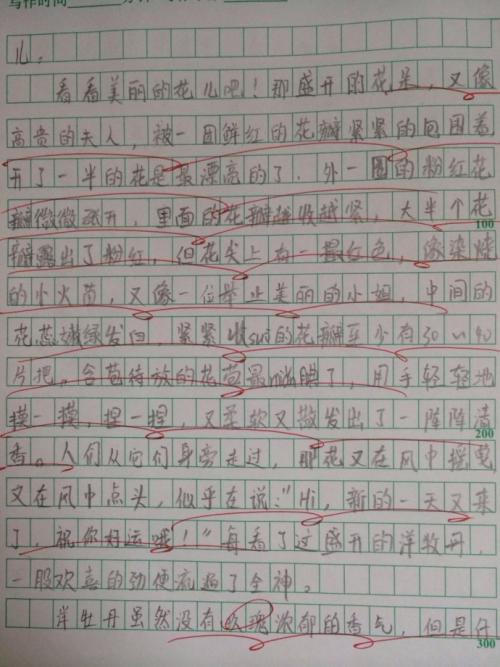 写作时间
儿。
看看美丽的花儿吧！那盛开的花朵，又像
高贵的夫人，被一团鲜红的花瓣紧紧的包围着
开了一半的花是最漂亮的了．外一圈的粉红花
瓣微微张开，里面的花瓣越收越紧，大半个花
100
瓣露出了粉红，但花尖上有一最红色，像染烧
的小火苗，又像一位举止美丽的小姐，中间的
花蕊嫩绿发白，紧紧收suo的花瓣至少有30～40
片把。含苞待放的花苞最腼腆了，用手轻轻地
摸一摸，捏一捏，又柔软又散发出了一阵阵清
200
香。人们从它们身旁走过，那花又在风中摇曳
又在风中点头，似乎在说："Hi，新的一天又来
了，祝你好运哦！"每看了过盛开的洋牧丹，
一股欢喜的劲便流遍了全神。
洋牡丹虽然没有玫瑰浓郁的香气，但是什
300